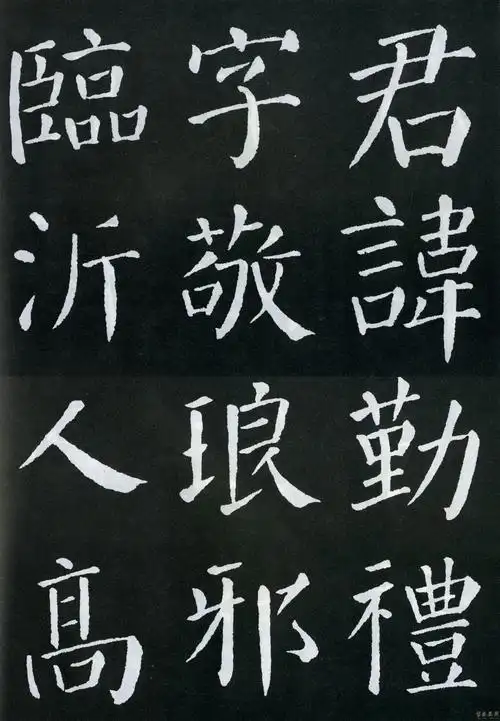 君諱勤禮
字敬琅邪
臨沂人髙